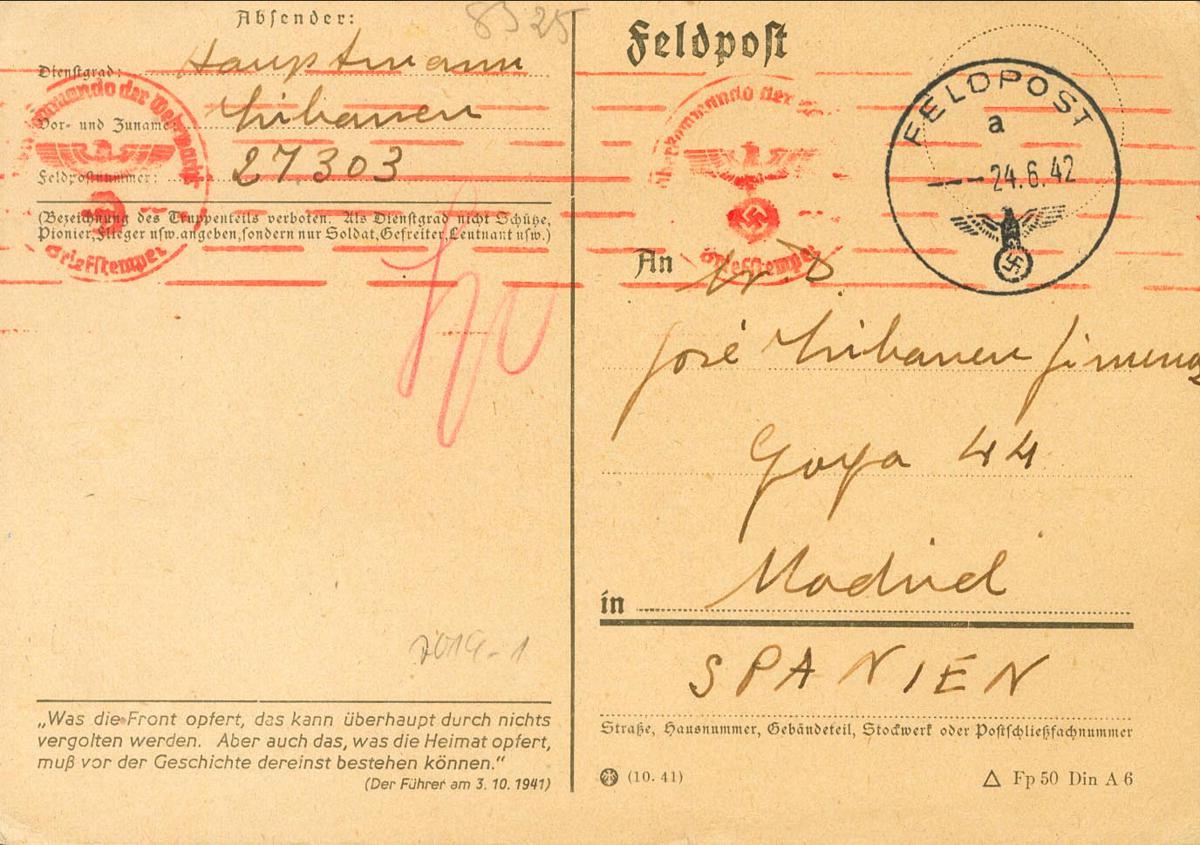 Absender:
8525
Dienstgrad: Hauptmann
Vor- und Zuname:
Feldpostnummer: 27.303
(Bezeichnung des Truppenteils verboten. Als Dienstgrad nicht Schütze,
Pionier, Flieger usw. angeben, sondern nur Soldat, Gefreiter, Leutnant usw.)
kommando der Wehrmacht
Briefstempel
2019-1
„Was die Front opfert, das kann überhaupt durch nichts
vergolten werden. Aber auch das, was die Heimat opfert,
muß vor der Geschichte dereinst bestehen können."
(Der Führer am 3. 10. 1941)
Feldpost
kommando der
Briefstempel
FELDPOST
a
24.6.42
An Sr. D.
José
Goya 44
in Madrid
SPANIEN
Straße, Hausnummer, Gebäudeteil, Stockwerk oder Postschließfachnummer
(10. 41)
Fp 50 Din A 6